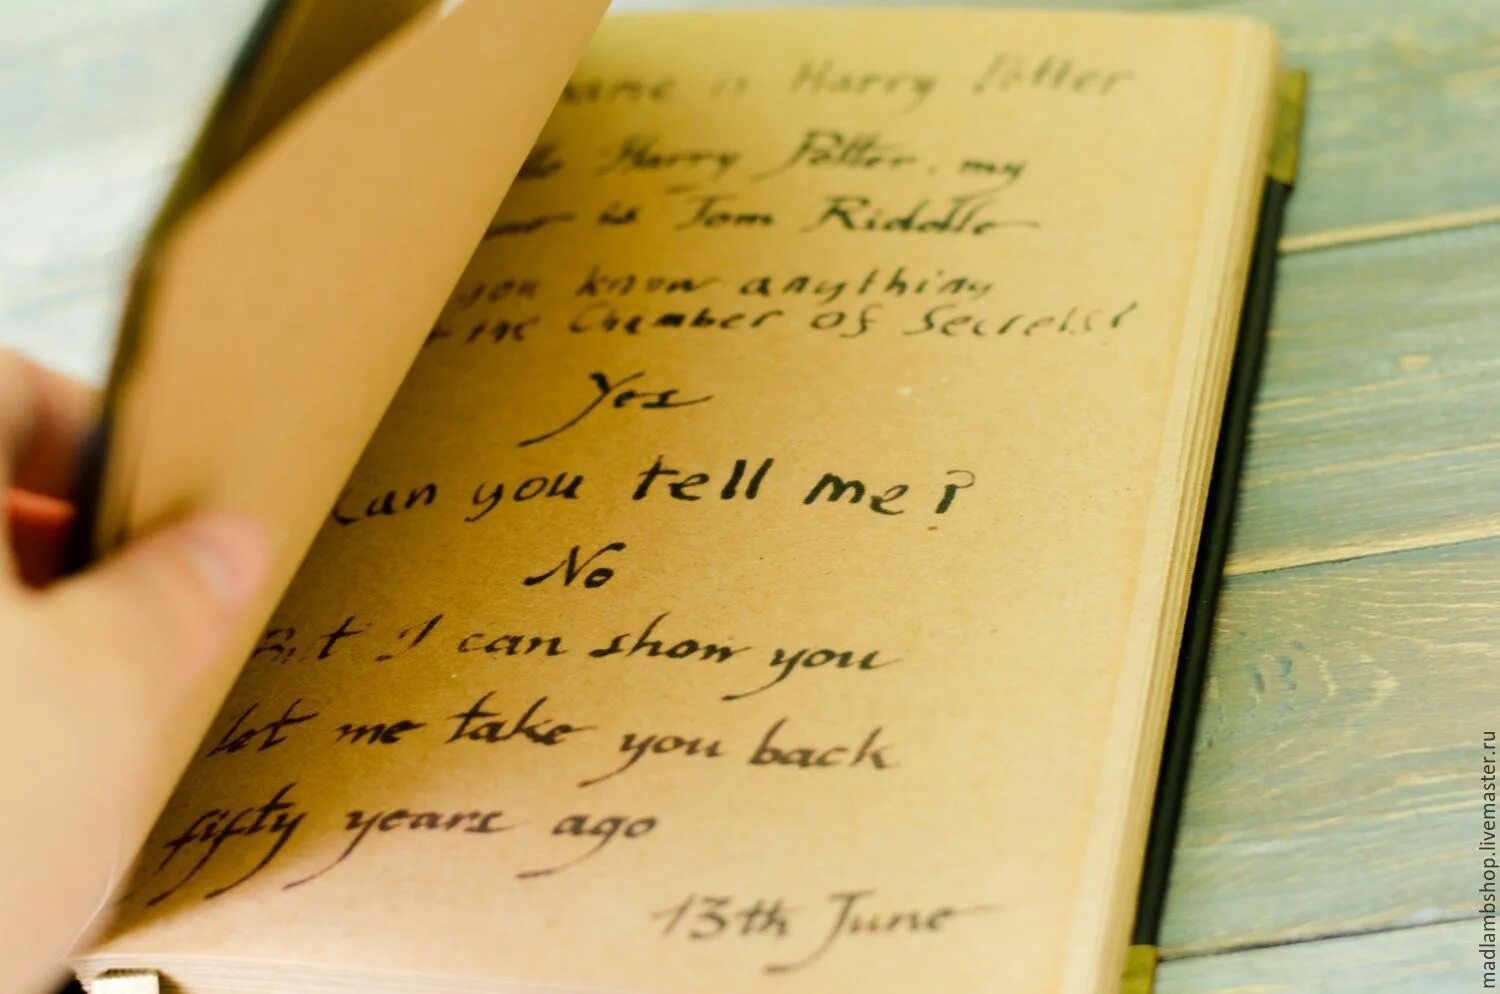 name is Harry Potter
Harry Potter, my
is Tom Riddle
you know anything
the Chamber of Secrets?
Yes
Can you tell me?
No
But I can show you
let me take you back
fifty years ago
13th June
madlambshop.livemaster.ru